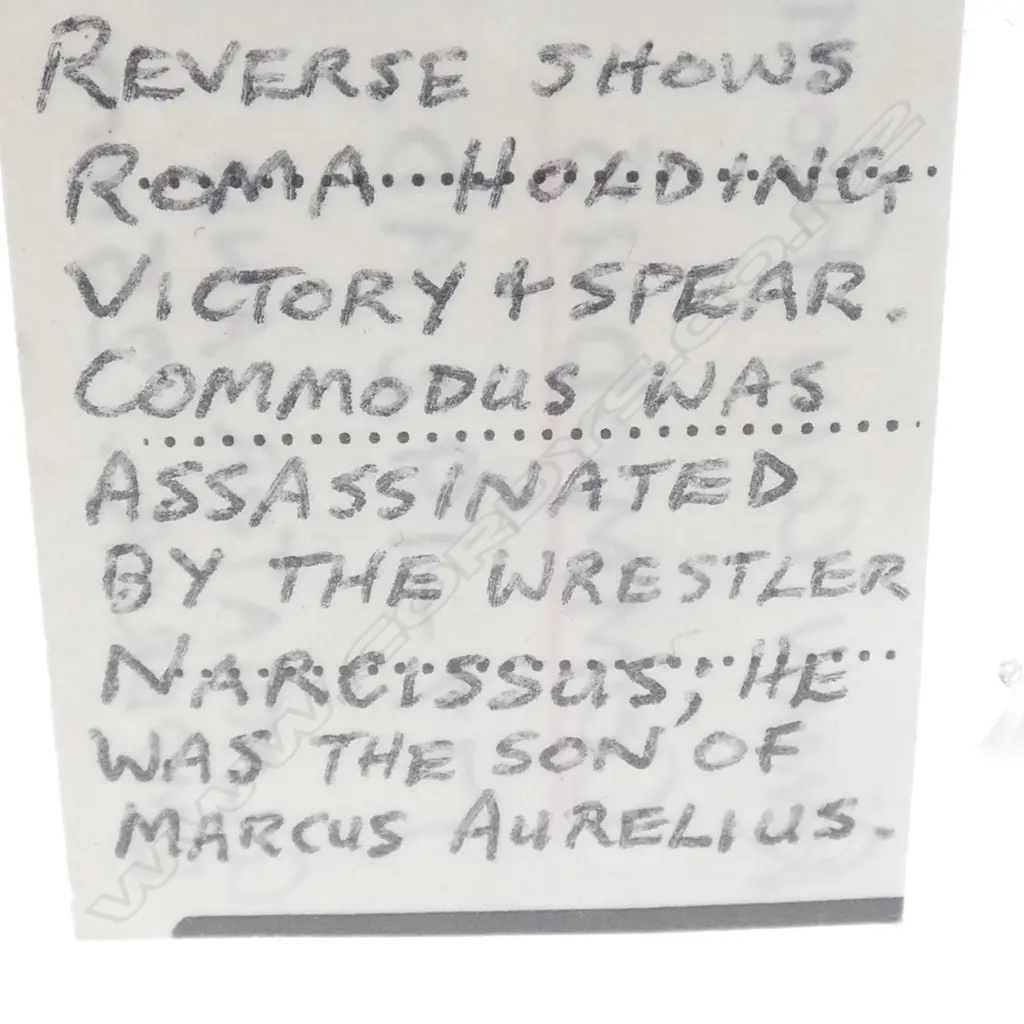 REVERSE SHOWS
ROMA HOLDING
VICTORY & SPEAR.
COMMODUS WAS
ASSASSINATED
BY THE WRESTLER
NARCISSUS; HE
WAS THE SON OF
MARCUS AURELIUS.
WWW.CORDYS.CO.NZ